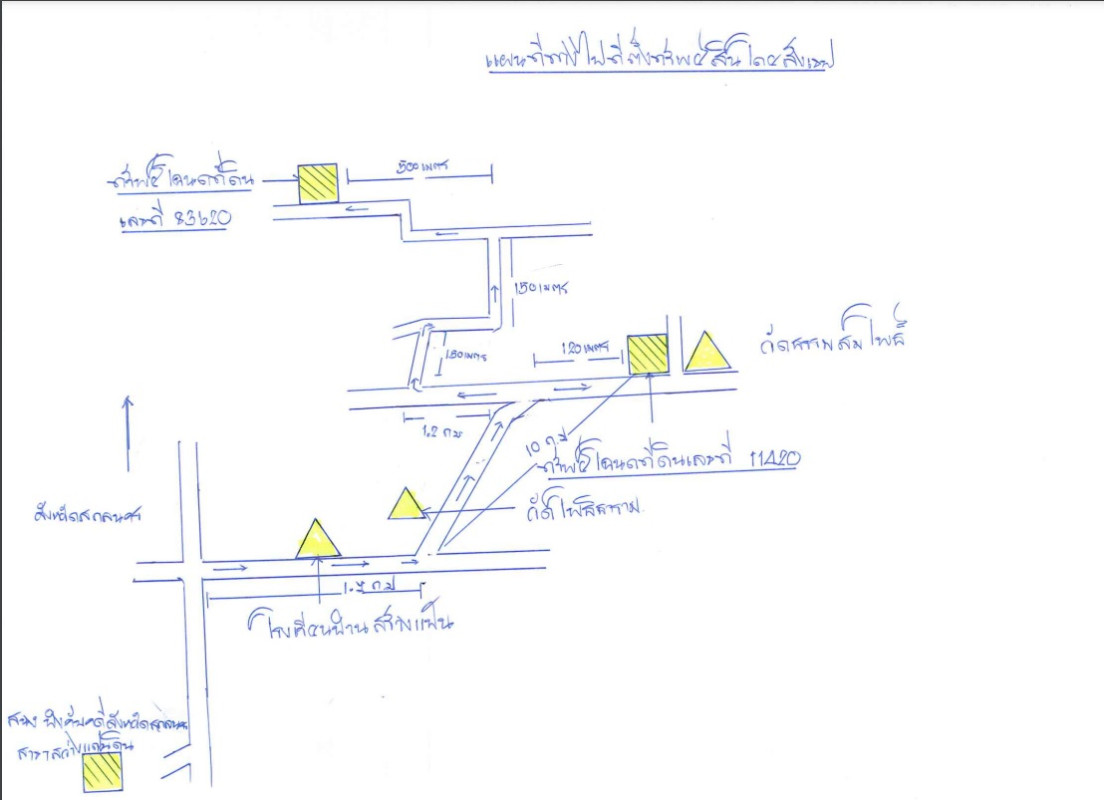 แผนที่การไปที่ตั้งทรัพย์สินโดยสังเขป
500 เมตร
ทรัพย์โฉนดที่ดิน
เลขที่ 83620
150 เมตร
120 เมตร
150 เมตร
1.2 กม
10 กม
ทรัพย์โฉนดที่ดินเลขที่ 11420
วัดโพธิ์ธาราม
จังหวัดสกลนคร
กม
โรงเรียนบ้าน
สนง บังคับคดีจังหวัดสกลนคร
สาขาสว่างแดนดิน